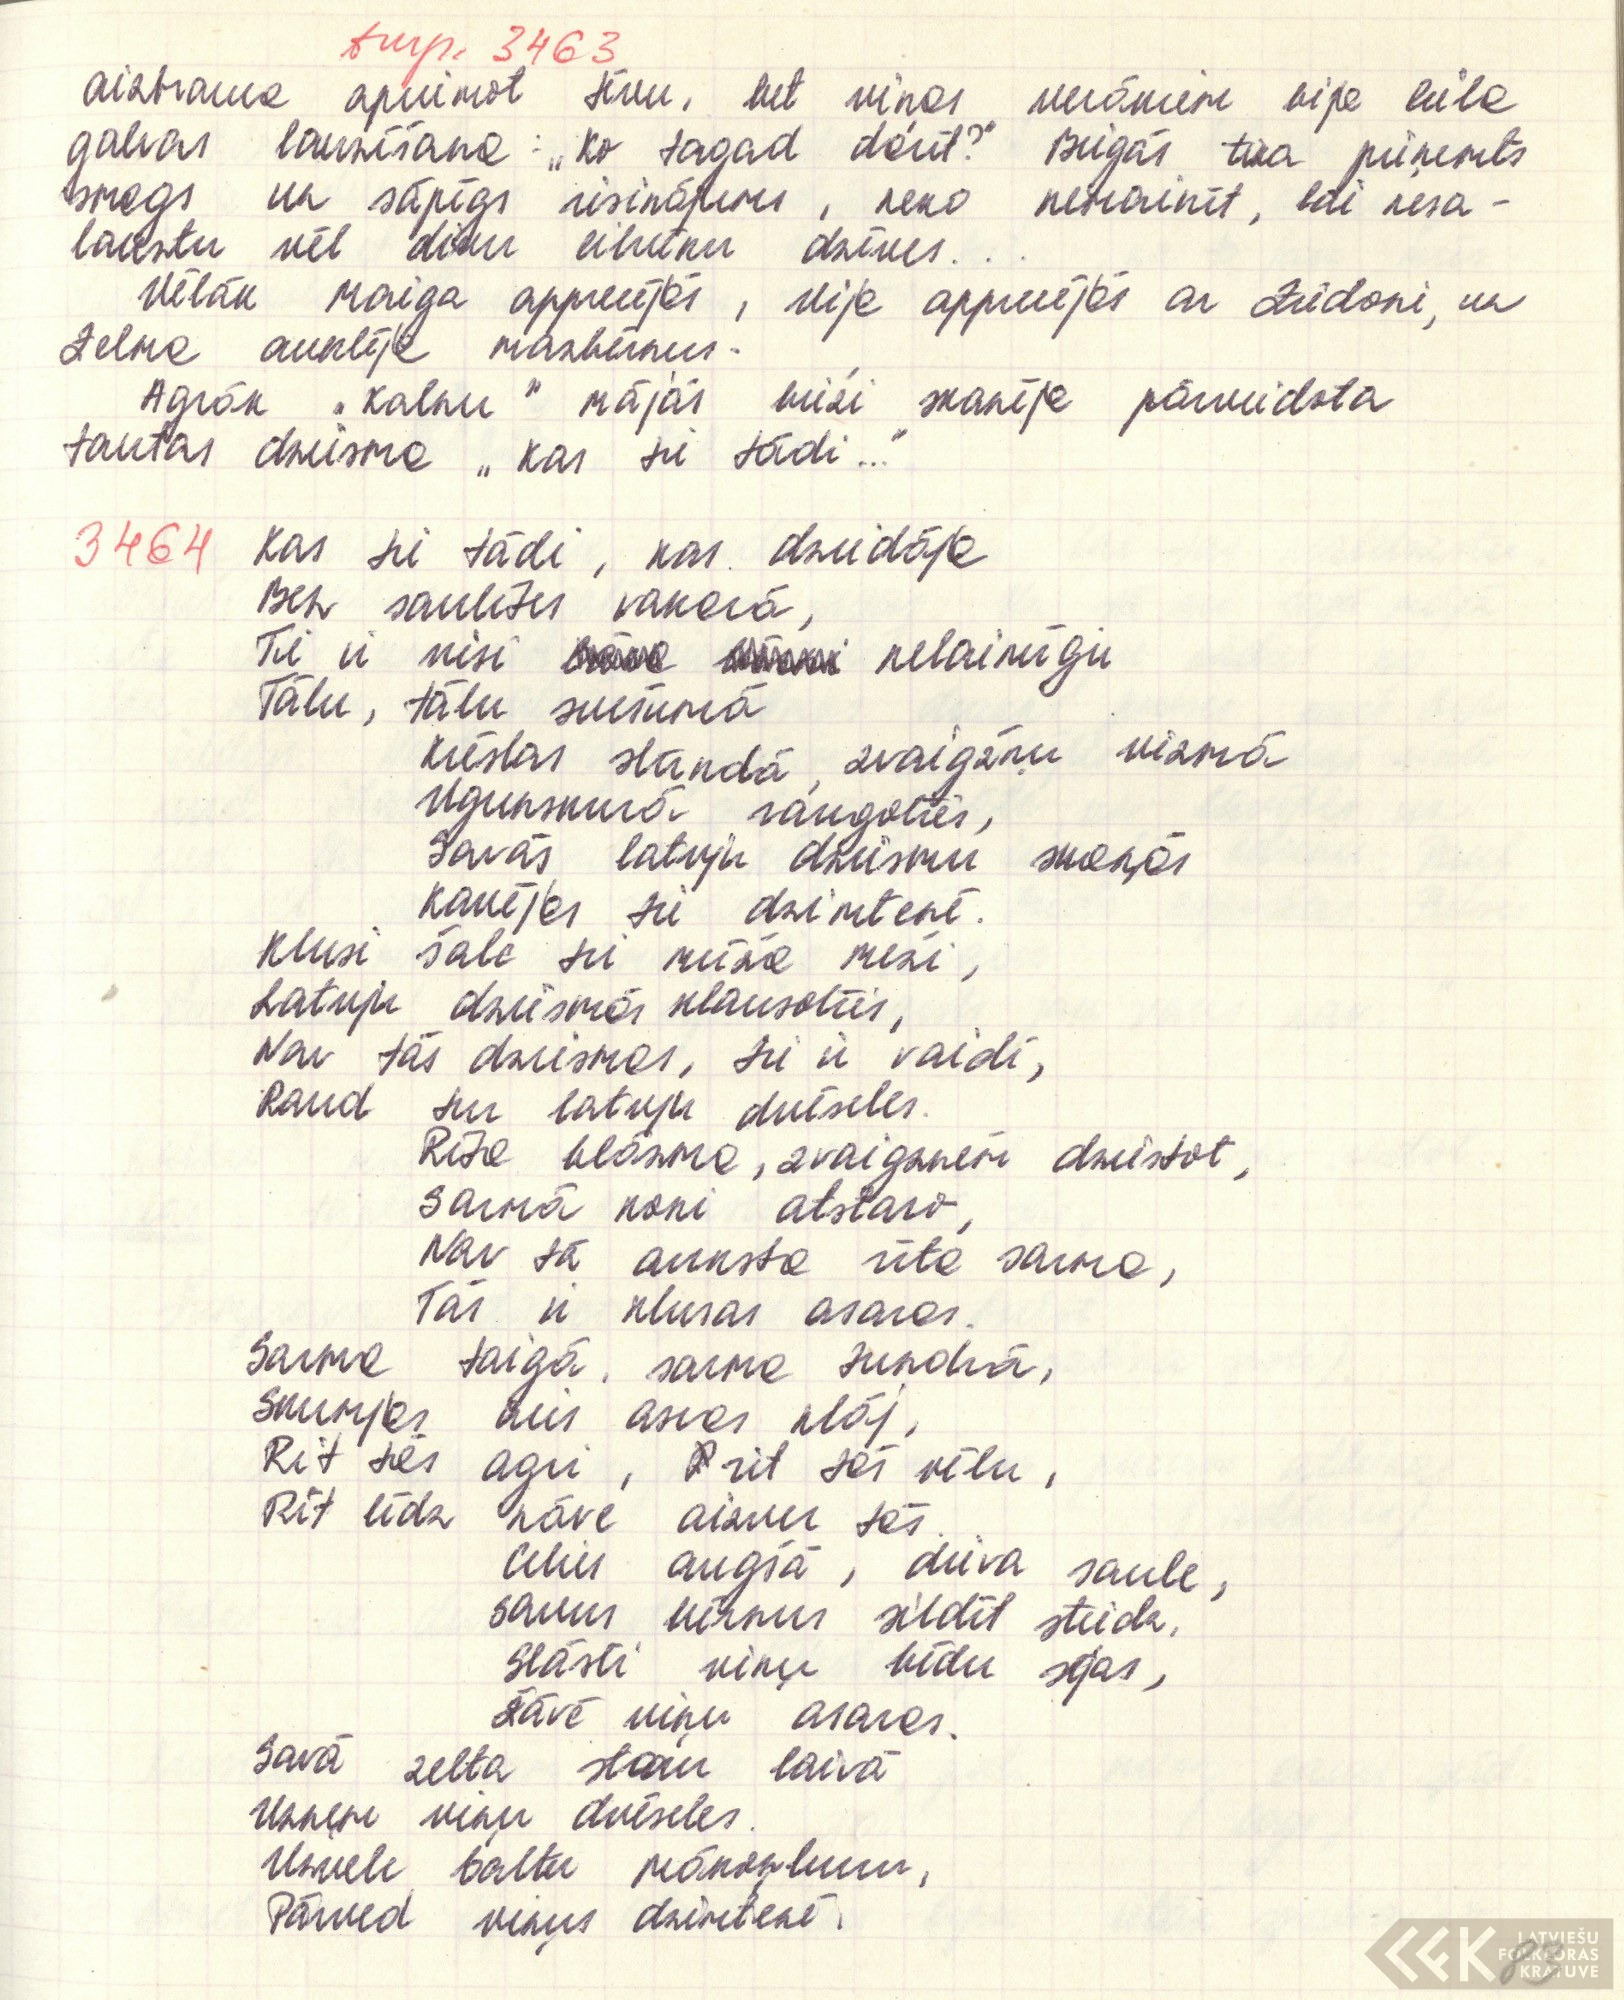 turp. 3463
aizbrauca apciemot tēvu, bet viņas vecākiem bija liela
galvas lauzīšana: „Ko tagad darīt?" Beigās tika pieņemts
smags un sāpīgs risinājums, neko nemainīt, lai nesa-
lauztu vēl divu cilvēku dzīves...
Vēlāk Maiga apprecējās, bija apprecējās ar Zīdoni, un
Zelma auklēja mazbērnus.
Agrāk „Kalnu" mājās bieži skanēja pārveidota
tautas dziesma „Kas tie tādi..."
3464 Kas tie tādi, kas dziedāja
Bez saulītes vakarā,
Tie ir visi nelaimīgie
Tālu, tālu svešumā
Krēslas stundā, zvaigžņu vizmā
Ugunskurā raugoties,
Savās latvju dziesmu skaņās
Kavējas tie dzimtenē.
Klusi šalc tie mūža meži,
Latvju dziesmās klausoties,
Nav tās dziesmas, tie ir vaidi,
Raud tur latvju dvēseles.
Rīta blāzma, zvaigznēm dziestot,
Sarmā koki atstaro,
Nav tā auksta rīta sarma,
Tās ir klusas asaras.
Sarma taigā, sarma tundrā,
Skumjas mūs asras klāj,
Rit tās agri, rit tās vēlu,
Rit līdz nāve aizver tās.
Celies augšā, dieva saule,
Savus bērnus sildīt steidz,
Glāsti viņu bēdu sejas,
Žāvē viņu asaras.
Savā zelta staru laivā
Uzņem viņu dvēseles.
Uzvelc baltu mākoņburu,
Pārved viņus dzimtenē.
LATVIEŠU
FOLKLORAS
KRĀTUVE
83